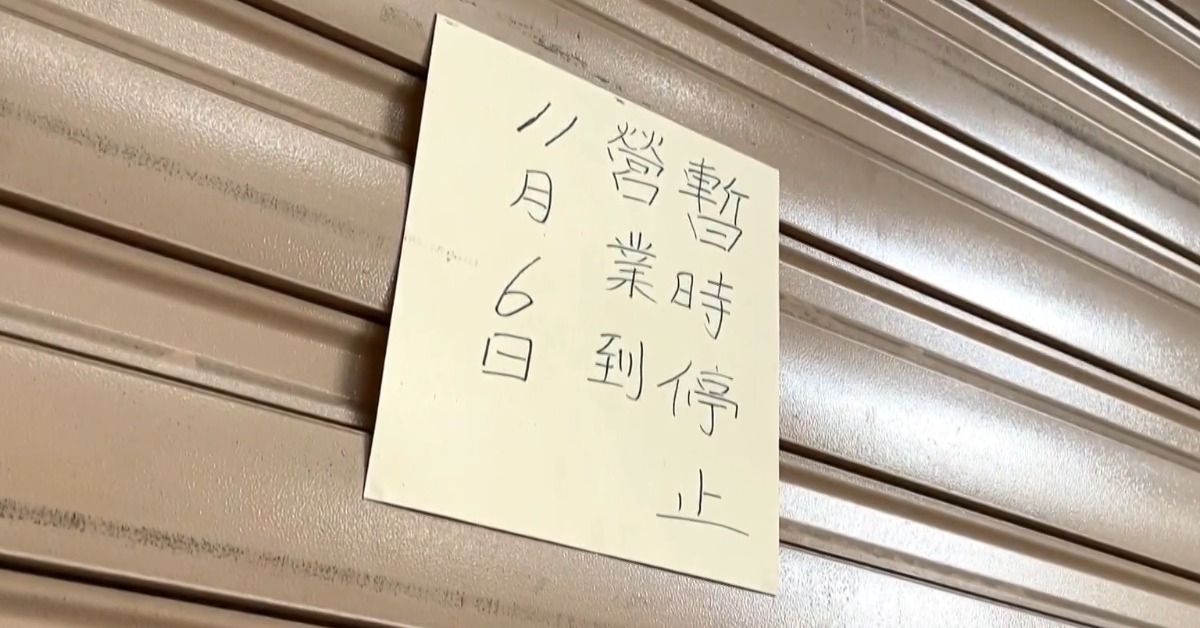 暫時停止
營業到
11月6日